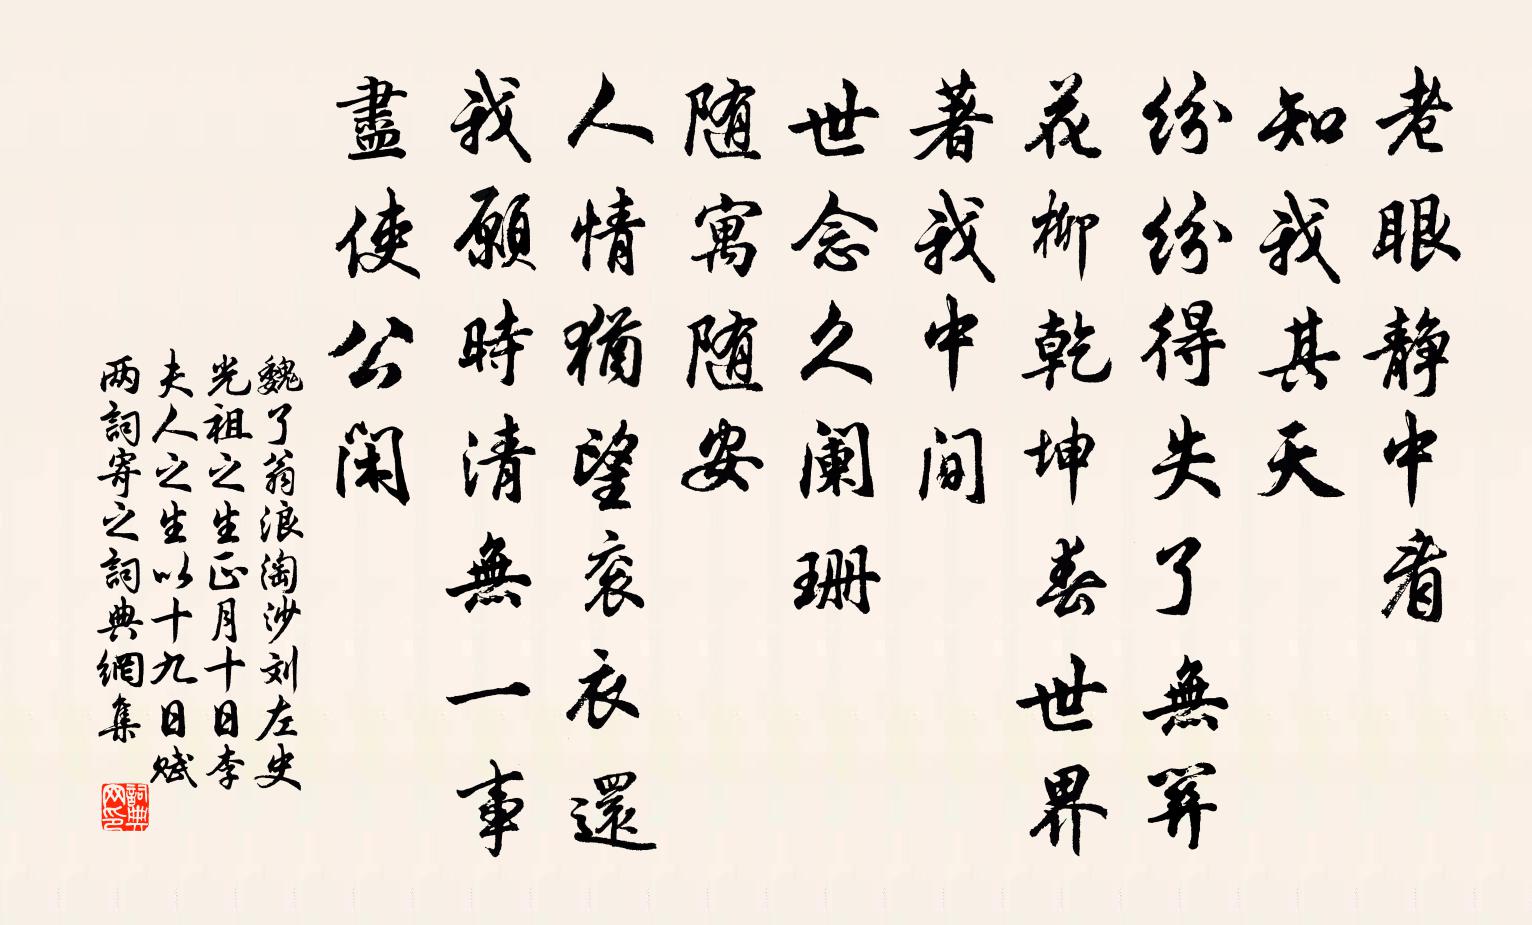 老眼静中看
知我其天
纷纷得失了無算
花柳乾坤春世界
著我中间
世念久阑珊
随寓随安
人情犹望衮衣還
我願時清無一事
盡使公闲
魏了翁浪淘沙刘左史
光祖之生正月十日李
夫人之生以十九日赋
两詞寄之詞典網集
詞典
网印